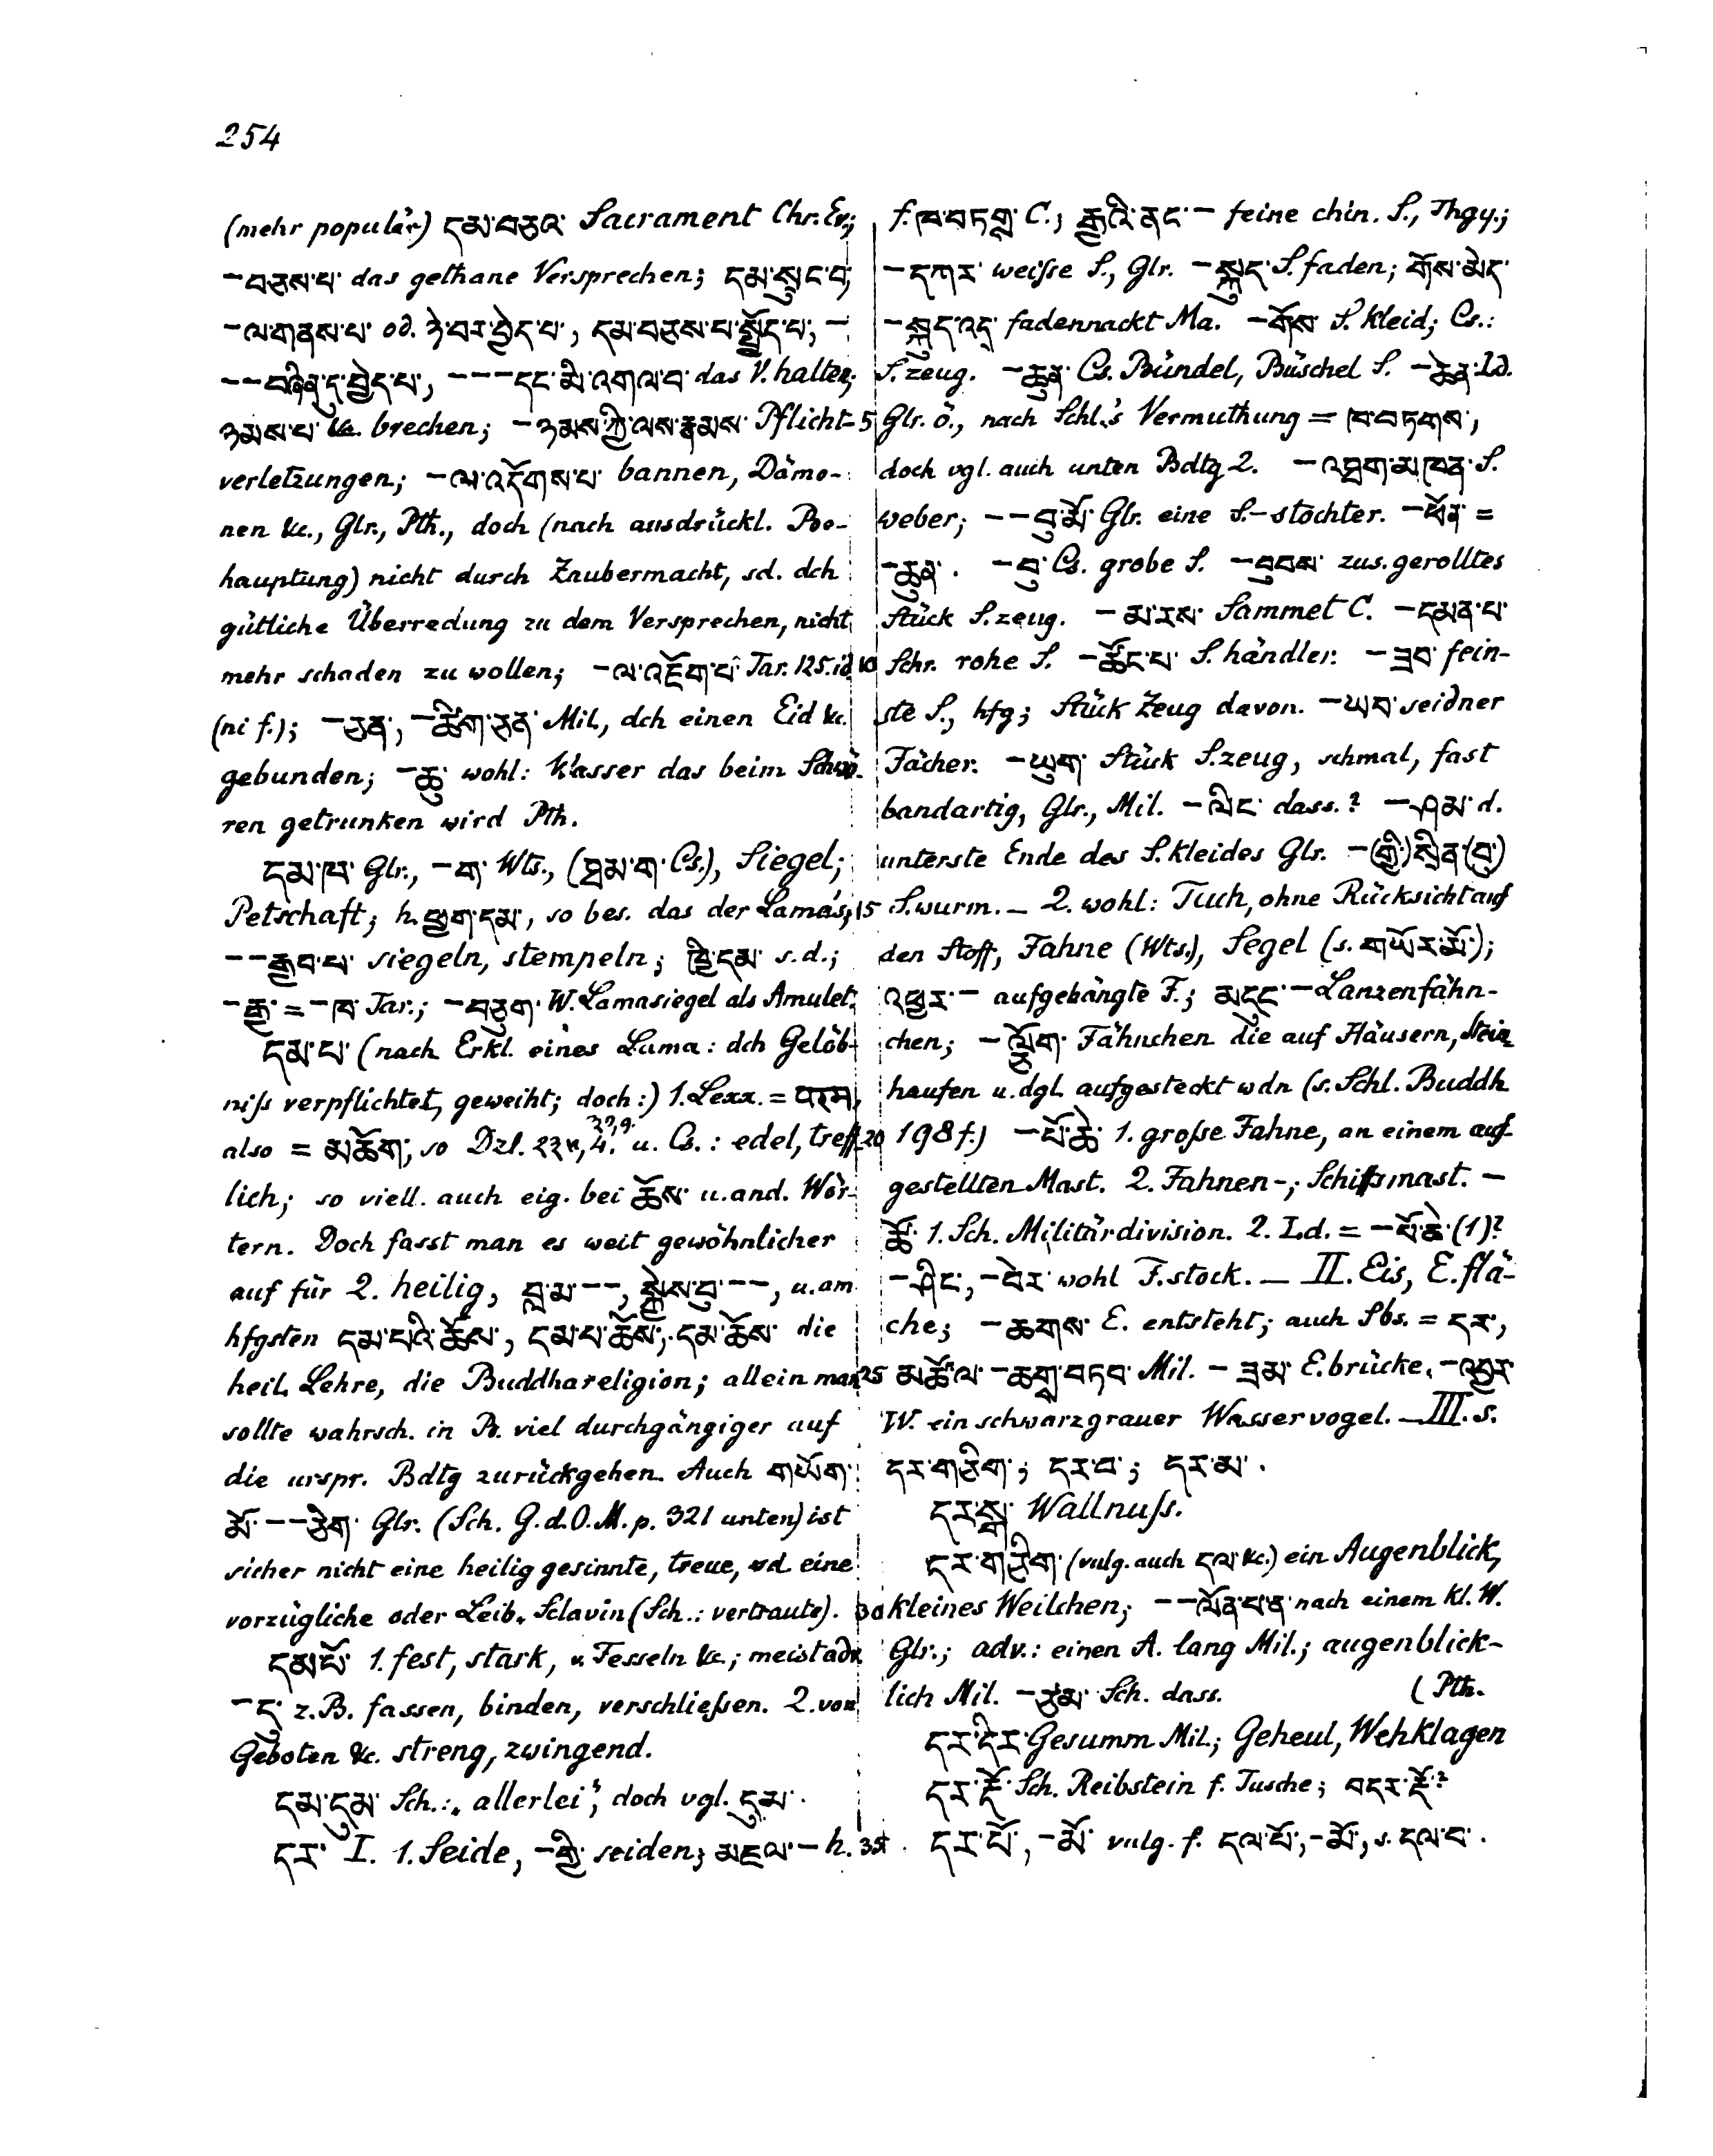 254
(mehr populär) དམ་བཅའ་ Sacrament Chr. Ev.;
–བཅས་པ་ das gethane Versprechen; དམ་སྲུང་བ,
–ལ་གནས་པ་ od. ཉེ་བར་བྱེད་པ་, དམ་བཅས་པ་སྤྱོད་པ་, –
––བཞིན་དུ་བྱེད་པ་, –––དང་མི་འགལ་བ་ das V. halten;
ཉམས་པ་ &c. brechen; –ཉམས་ཀྱི་ལས་རྣམས་ Pflicht-
verletzungen; –ལ་འདོགས་པ་ bannen, Dämo-
nen &c., Glr., Pth., doch (nach ausdrückl. Be-
hauptung) nicht durch Zaubermacht, sd. dch
gütliche Überredung zu dem Versprechen, nicht
mehr schaden zu wollen; –ལ་འཇོག་པ་ Tar. 125. id.
(ni f.); –ཅན་, –ཚིག་ཅན་ Mil., dch einen Eid &c.
gebunden; –ཆུ་ wohl: Wasser das beim Schwö-
ren getrunken wird Pth.
དམ་ཁ་ Glr., –ག་ Wts., (ཐམ་ག་ Cs.), Siegel;
Petschaft; h. ཕྱག་དམ་, so bes. das der Lama's;
––རྒྱབ་པ་ siegeln, stempeln; ཁྲི་དམ་ s. d.;
–རྒྱ་ = –ཁ་ Tar.; –བཅུག་ W. Lamasiegel als Amulet.
དམ་པ་ (nach Erkl. eines Lama: dch Gelöb-
niſs verpflichtet, geweiht; doch:) 1. Lexx. = परम,
also = མཆོག་, so Dzl. u. Cs.: edel, treff-
lich; so viell. auch eig. bei ཆོས་ u. and. Wör-
tern. Doch fasst man es weit gewöhnlicher
auf für 2. heilig, བླ་མ་––, སྐྱེས་བུ་––, u. am
hfgsten དམ་པའི་ཆོས་, དམ་པ་ཆོས་, དམ་ཆོས་ die
heil. Lehre, die Buddhareligion; allein man
sollte wahrsch. in B. viel durchgängiger auf
die urspr. Bdtg zurückgehen. Auch གཡོག་
མོ་––ཅིག་ Glr. (Sch. G. d. O. M. p. 321 unten) ist
sicher nicht eine heilig gesinnte, treue, od. eine
vorzügliche oder Leib-Sclavin (Sch.: vertraute).
དམ་པོ་ 1. fest, stark, v. Fesseln &c.; meist adv.
–དུ་ z. B. fassen, binden, verschlieſsen. 2. von
Geboten &c. streng, zwingend.
དམ་དུམ་ Sch.: „allerlei", doch vgl. དུམ་.
དར་ I. 1. Seide, –གྱི་ seiden; མཇལ་– h.
f. ཁ་བཏགས་ C.; རྒྱའི་ནང་– feine chin. S., Thgy.;
–དཀར་ weiſse S., Glr. –སྐུད་ S. faden; གོས་མེད་
–སྐུད་འདྲ་ fadennackt Ma. –གོས་ S. kleid; Cs.:
S. zeug. –ཆུན་ Cs. Bündel, Büschel S. –ཆེན་ Ld.
5 Glr. ö., nach Schl.'s Vermuthung = ཁ་བཏགས་,
doch vgl. auch unten Bdtg 2. –འཐག་མཁན་ S.
weber; ––བུ་མོ་ Glr. eine S.-stochter. –ཕོན་ =
–ཆུན་. –བུ་ Cs. grobe S. –བུབས་ zus. gerolltes
Stück S. zeug. –མ་རས་ Sammet C. –དམན་པ་
10 Schr. rohe S. –ཚོང་པ་ S. händler. –ཟབ་ fein-
ste S., hfg; Stück Zeug davon. –ཡབ་ seidner
Fächer. –ཡུག་ Stück S. zeug, schmal, fast
bandartig, Glr., Mil. –ལིང་ dass.? –ཤམ་ d.
unterste Ende des S. kleides Glr. –(གྱི་)སྲིན་(བུ་)
15 S. wurm. – 2. wohl: Tuch, ohne Rücksicht auf
den Stoff, Fahne (Wts.), Segel (s. གཡོར་མོ་);
འཕྱར་– aufgehängte F.; མདུང་– Lanzenfähn-
chen; –ལྕོག་ Fähnchen die auf Häusern, Stein-
haufen u. dgl. aufgesteckt wdn (s. Schl. Buddh
20 198 f.) –པོ་ཆེ་ 1. groſse Fahne, an einem auf-
gestellten Mast. 2. Fahnen-, Schiffsmast. –
ཚོ་ 1. Sch. Militärdivision. 2. Ld. = –པོ་ཆེ་ (1)?
–ཤིང་, –བེར་ wohl F. stock. – II. Eis, E. flä-
che; –ཆགས་ E. entsteht; auch Sbs. = དར་,
25 མཚོ་ལ་–ཆགས་བཏབ་ Mil. –ཟམ་ E. brücke. –འབྱར་
W. ein schwarzgrauer Wasservogel. – III. s.
དར་གཅིག་; དར་བ་; དར་མ་.
དར་སྒ་ Wallnuſs.
དར་གཅིག་ (vulg. auch དལ་ &c.) ein Augenblick,
30 kleines Weilchen; ––ལོན་པ་ན་ nach einem kl. W.
Glr.; adv.: einen A. lang Mil.; augenblick-
lich Mil. –ཙམ་ Sch. dass. (Pth.
དར་དིར་ Gesumm Mil.; Geheul, Wehklagen
དར་རྡོ་ Sch. Reibstein f. Tusche; བདར་རྡོ་?
35 དར་པོ་, –མོ་ vulg. f. དལ་པོ་, –མོ་, s. དལ་བ་.